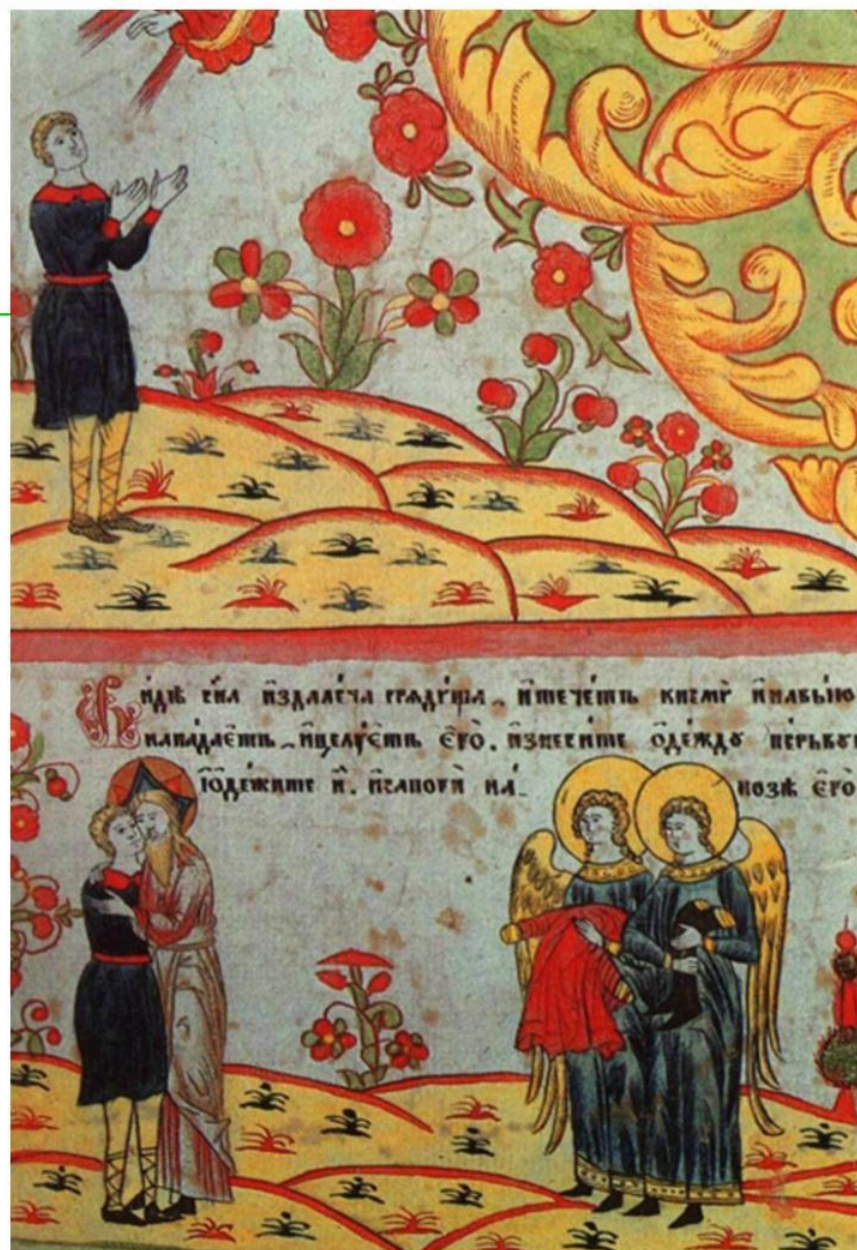 Видѣ сн҃а и҆здале́ча грѧдꙋ́ща, и҆тече́тъ кнемꙋ̀ и҆навы́ю
напада́єтъ, и҆целꙋ́єтъ є҆го̀. и҆знеси́те ѻ҆де́ждꙋ пе́рьвꙋ
и҆ѻ҆де́жите и҆. и҆сапогѝ на- нозѣ є҆го̀